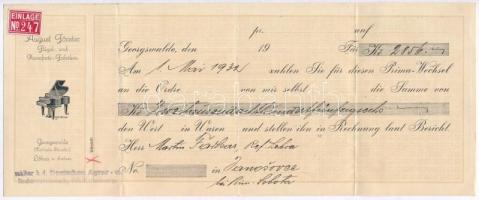 EINLAGE
No 247
August Förster
Flügel- und
Pianoforte-Fabriken
Georgswalde
Löbau in Sachsen
pr. auf
Georgswalde, den 19 Für Kč 2856.-
Am 1 Mai 1932 zahlen Sie für diesen Prima-Wechsel
an die Ordre von mir selbst die Summe von
Kč Zweitausendachthundertfünfzigsechs
den Wert in Waren und stellen ihn in Rechnung laut Bericht.
Herr Martin
No. in Janošovce
bei Rim. Sobota